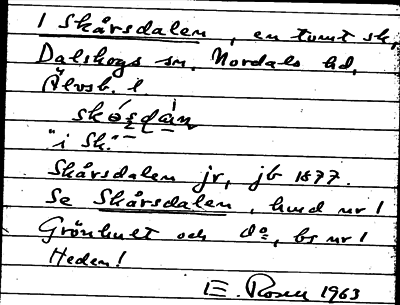 I Skårsdalen, en tomt sk,
Dalskogs sn. Nordals hd,
Älvsb. l
skó̱sdàn
"i Sk."
Skårsdalen jr, jb 1877.
Se Skårsdalen, hmd nr 1
Grönhult och do, bs nr 1
Heden!
E. Rosen 1963